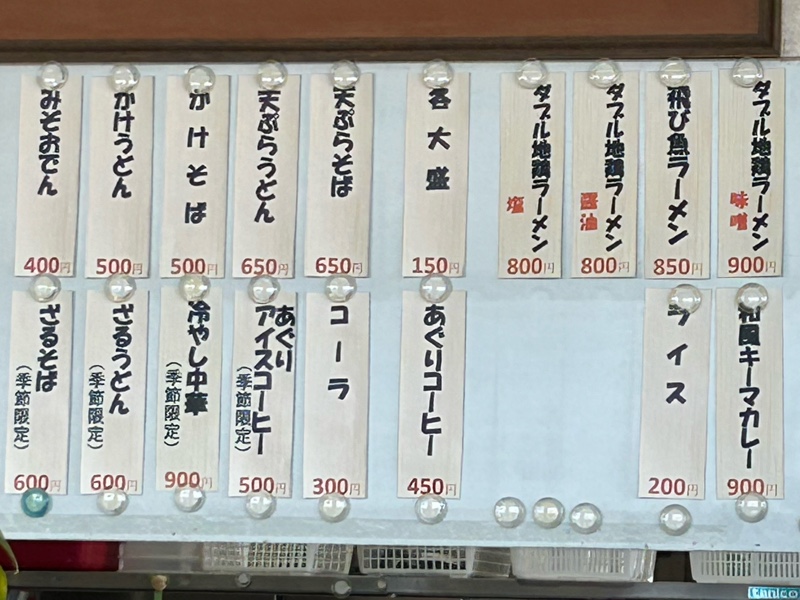 ダブル地鶏ラーメン
味噌
900円
飛び魚ラーメン
850円
ダブル地鶏ラーメン
醤油
800円
ダブル地鶏ラーメン
塩
800円
各大盛
150円
天ぷらそば
650円
天ぷらうどん
650円
かけそば
500円
かけうどん
500円
みそおでん
400円
和風キーマカレー
900円
ライス
200円
あぐりコーヒー
450円
コーラ
300円
あぐり
アイスコーヒー
(季節限定)
500円
冷やし中華
(季節限定)
900円
ざるうどん
(季節限定)
600円
ざるそば
(季節限定)
600円